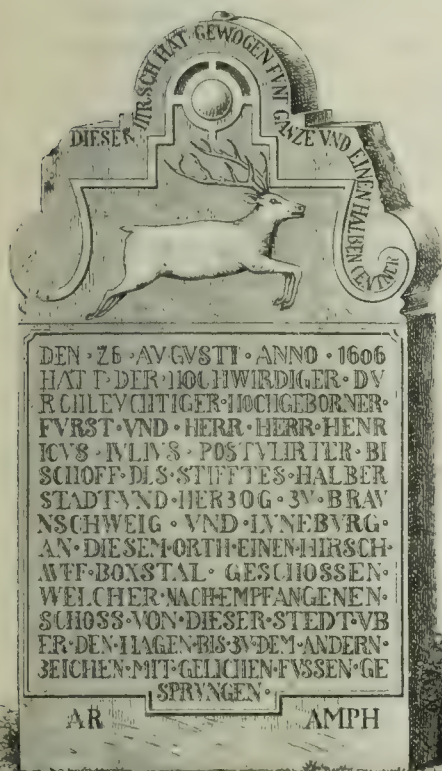 DIESER HIRSCH HAT GEWOGEN FVNF GANZE VND EINEN HALBEN CENTNER
DEN · 26 · AVGVSTI · ANNO · 1606
HATT · DER · HOCHWIRDIGER · DV
RCHLEVCHTIGER · HOCHGEBORNER ·
FVRST · VND · HERR · HERR · HENR
ICVS · IVLIVS · POSTVLIRTER · BI
SCHOFF · DES · STIFFTES · HALBER
STADT · VND · HERZOG · ZV · BRAV
NSCHWEIG · VND · LVNEBVRG ·
AN · DIESEM · ORTH · EINEN · HIRSCH ·
AVFF · BOXSTAL · GESCHOSSEN ·
WELCHER · NACH · EMPFANGENEN ·
SCHOSS · VON · DIESER · STEDT · VB
ER · DEN · HAGEN · BIS · ZV · DEM · ANDERN ·
ZEICHEN · MIT · GELICHEN · FVSSEN · GE
SPRVNGEN ·
AR AMPH